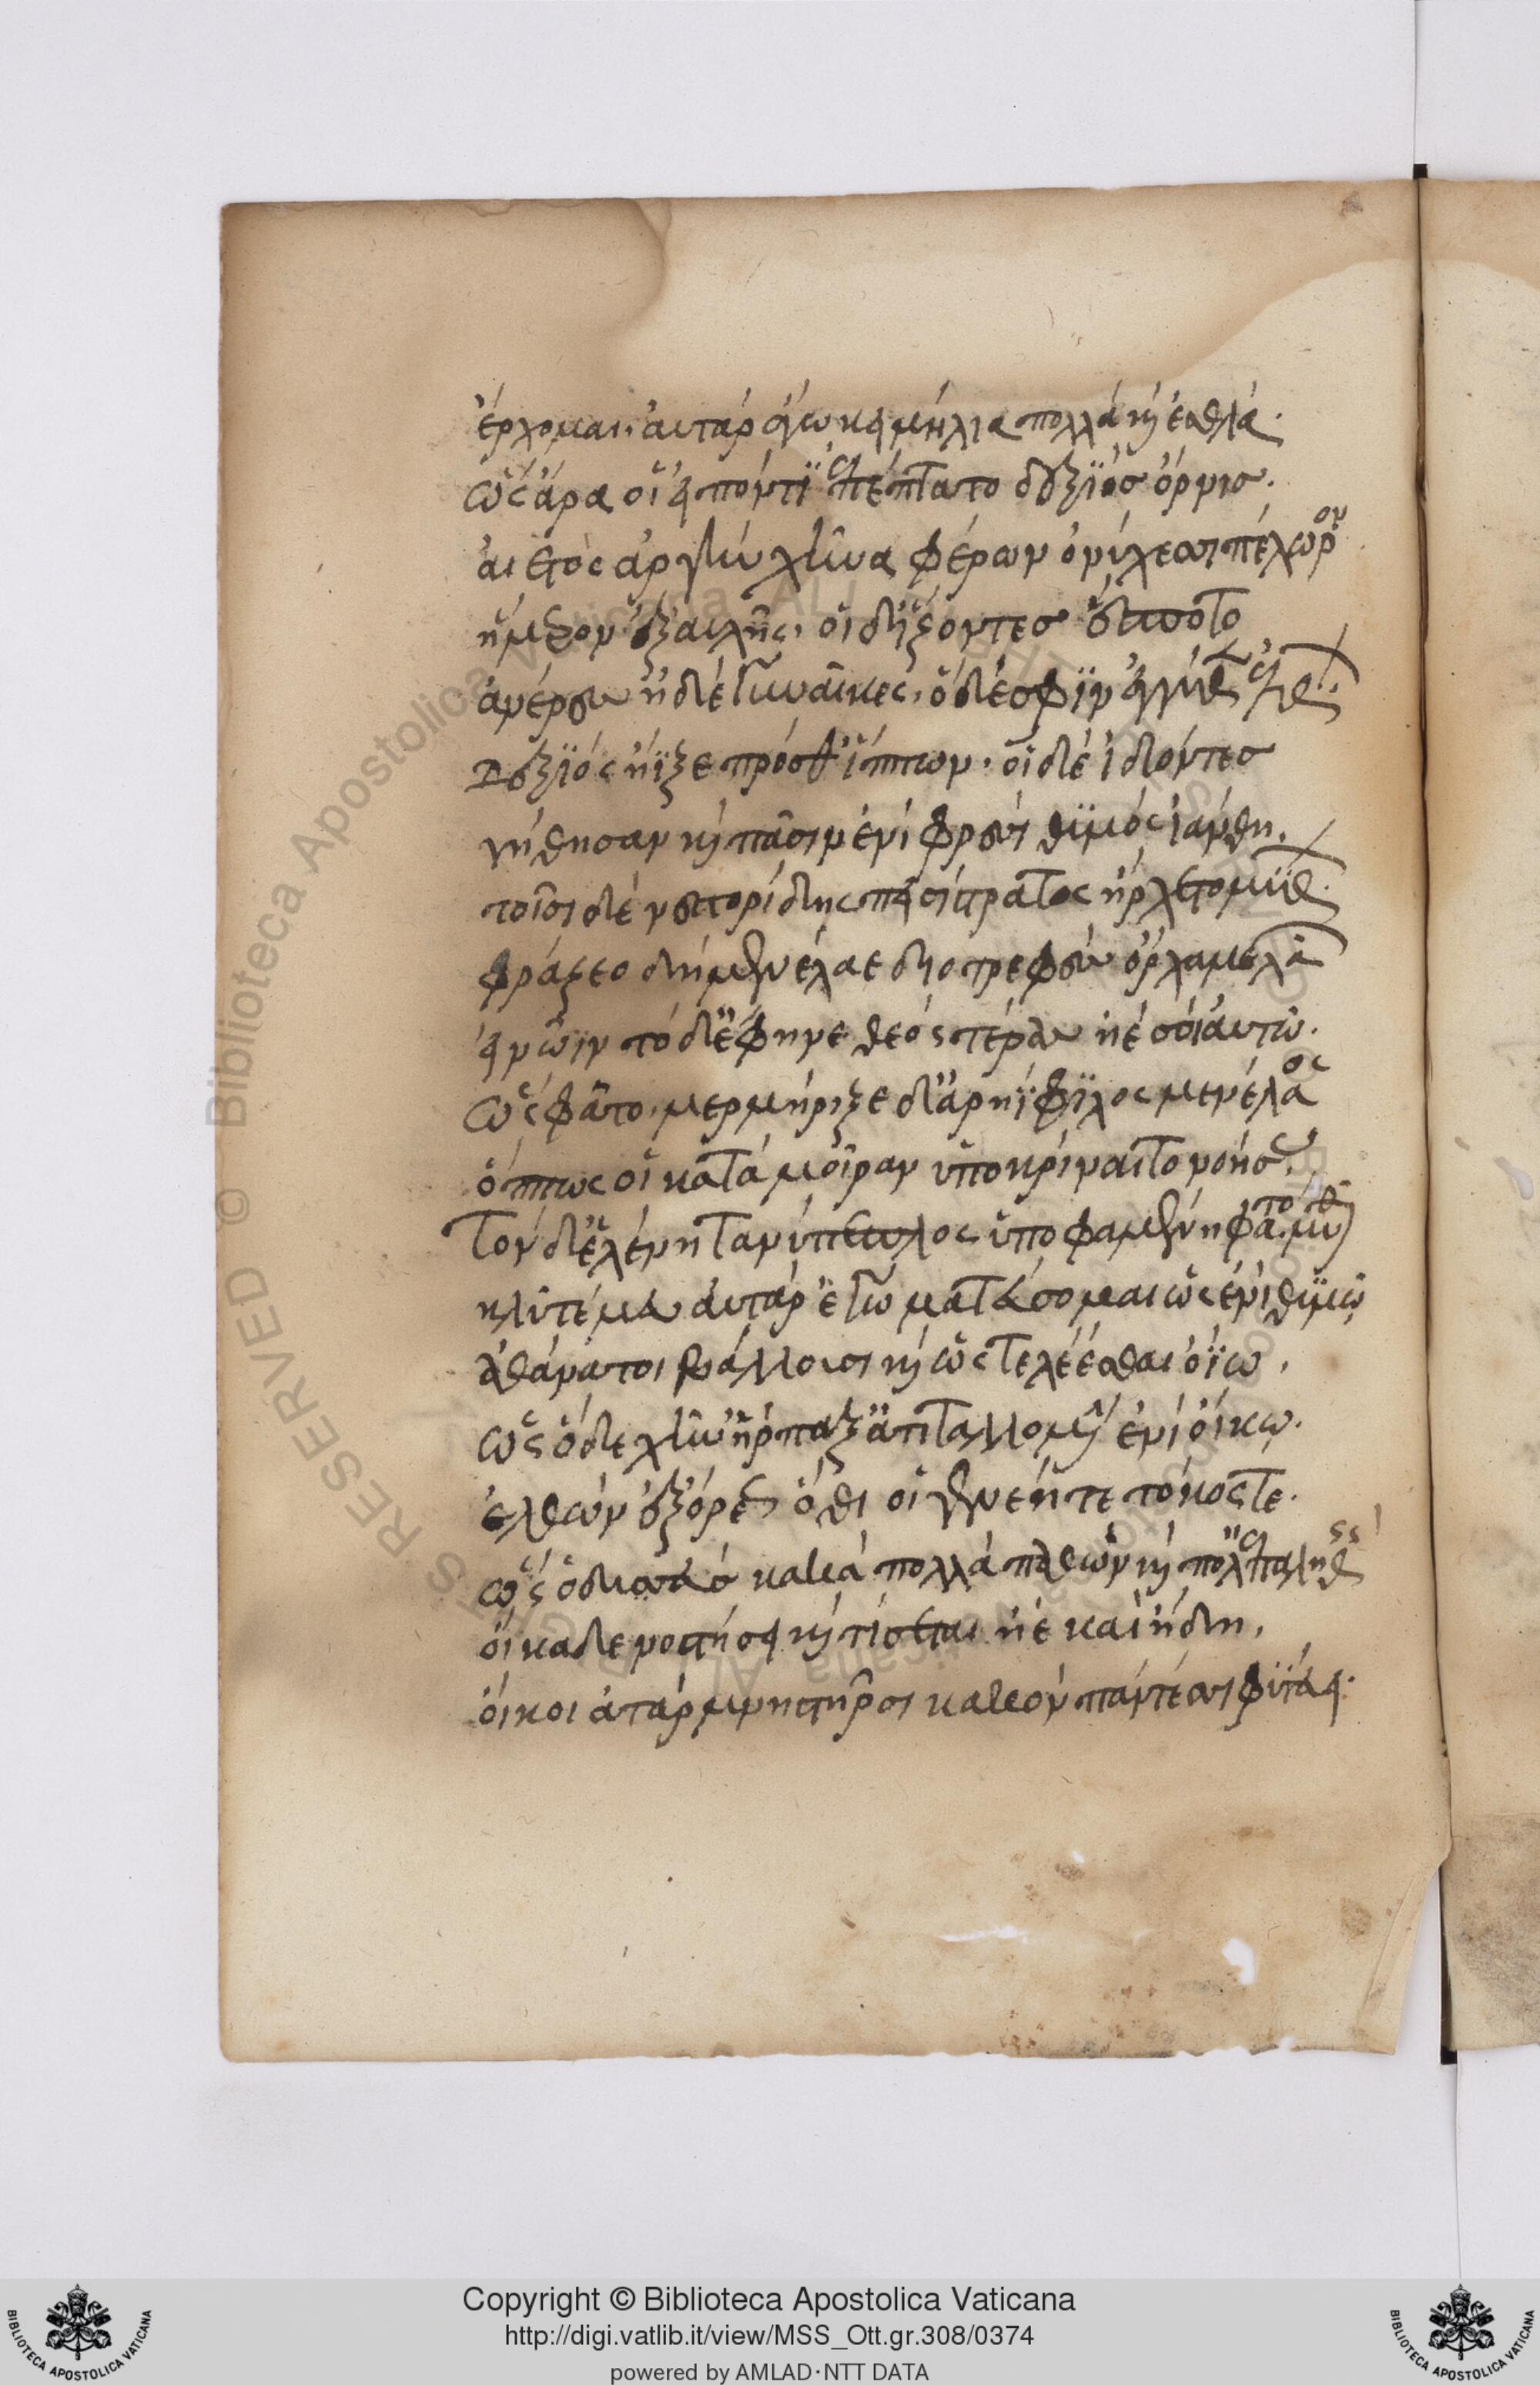 ἔρχομαι· ἀυτὰρ ἄγω κειμήλια πολλὰ καὶ ἐσθλά·
ὣς ἄρα οἱ εἰπόντι ἐπέπτατο δεξιὸς ὄρνισ·
ἀιετὸς ἀργὴν χῆνα φέρων ὀνύχεσσι πέλωρον
ἥμερον ἐξ αυλῆς· οἱ δ' ϊύζοντεσ ἕποντο
ἀνέρεσ ἠδὲ γυναῖκες· ὁ δέ σφιν ἐγγύθεν ἐλθών·
δεξιὸς ἤϊξε πρόσθ' ἵππων· οἱ δὲ ἰδόντεσ
γήθησαν καὶ πᾶσιν ἐνὶ φρεσὶ θυμὸς ἰάνθη·
τοῖσι δὲ νεστορίδης πεισίστρατος ἤρχετο μύθων·
φράζεο δὴ μενέλαε διοτρεφὲσ ὄρχαμε λαῶν
εἰ νῶϊν τόδ' ἔφηνε θεὸς τέρασ ἠὲ σοὶ ἀυτῶ·
ὣς φάτο· μερμήριξε δ' ἀρηΐφιλος μενέλαος
ὅππως οἱ κατὰ μοῖραν ὑποκρίναιτο νοήσας·
Τὸν δ' ἑλένη τανύπεπλος ὑποφθαμένη φάτο μῦθον
κλῦτέ μευ ἀυτὰρ ἐγὼ μαντεύσομαι ὡς ἐνὶ θυμῶ
ἀθάνατοι βάλλουσι καὶ ὡς τελέεσθαι ὀΐω·
ὡς ὅδε χῆν' ἥρπαξ' ἀτιταλλομένην ἐνὶ ὄικω·
ἐλθὼν ἐξ ὄρεος ὅθι οἱ γενεή τε τόκος τε·
ὣς ὀδυσεὺσ κακὰ πολλὰ παθὼν καὶ πόλλ' ἐπαληθεὶς
ὄικαδε νοστήσει καὶ τίσεται ἠὲ καὶ ἤδη·
ὄικοι ἀτὰρ μνηστῆρσι κακὸν πάντεσσι φυτεύει·
Copyright © Biblioteca Apostolica Vaticana
http://digi.vatlib.it/view/MSS_Ott.gr.308/0374
powered by AMLAD·NTT DATA